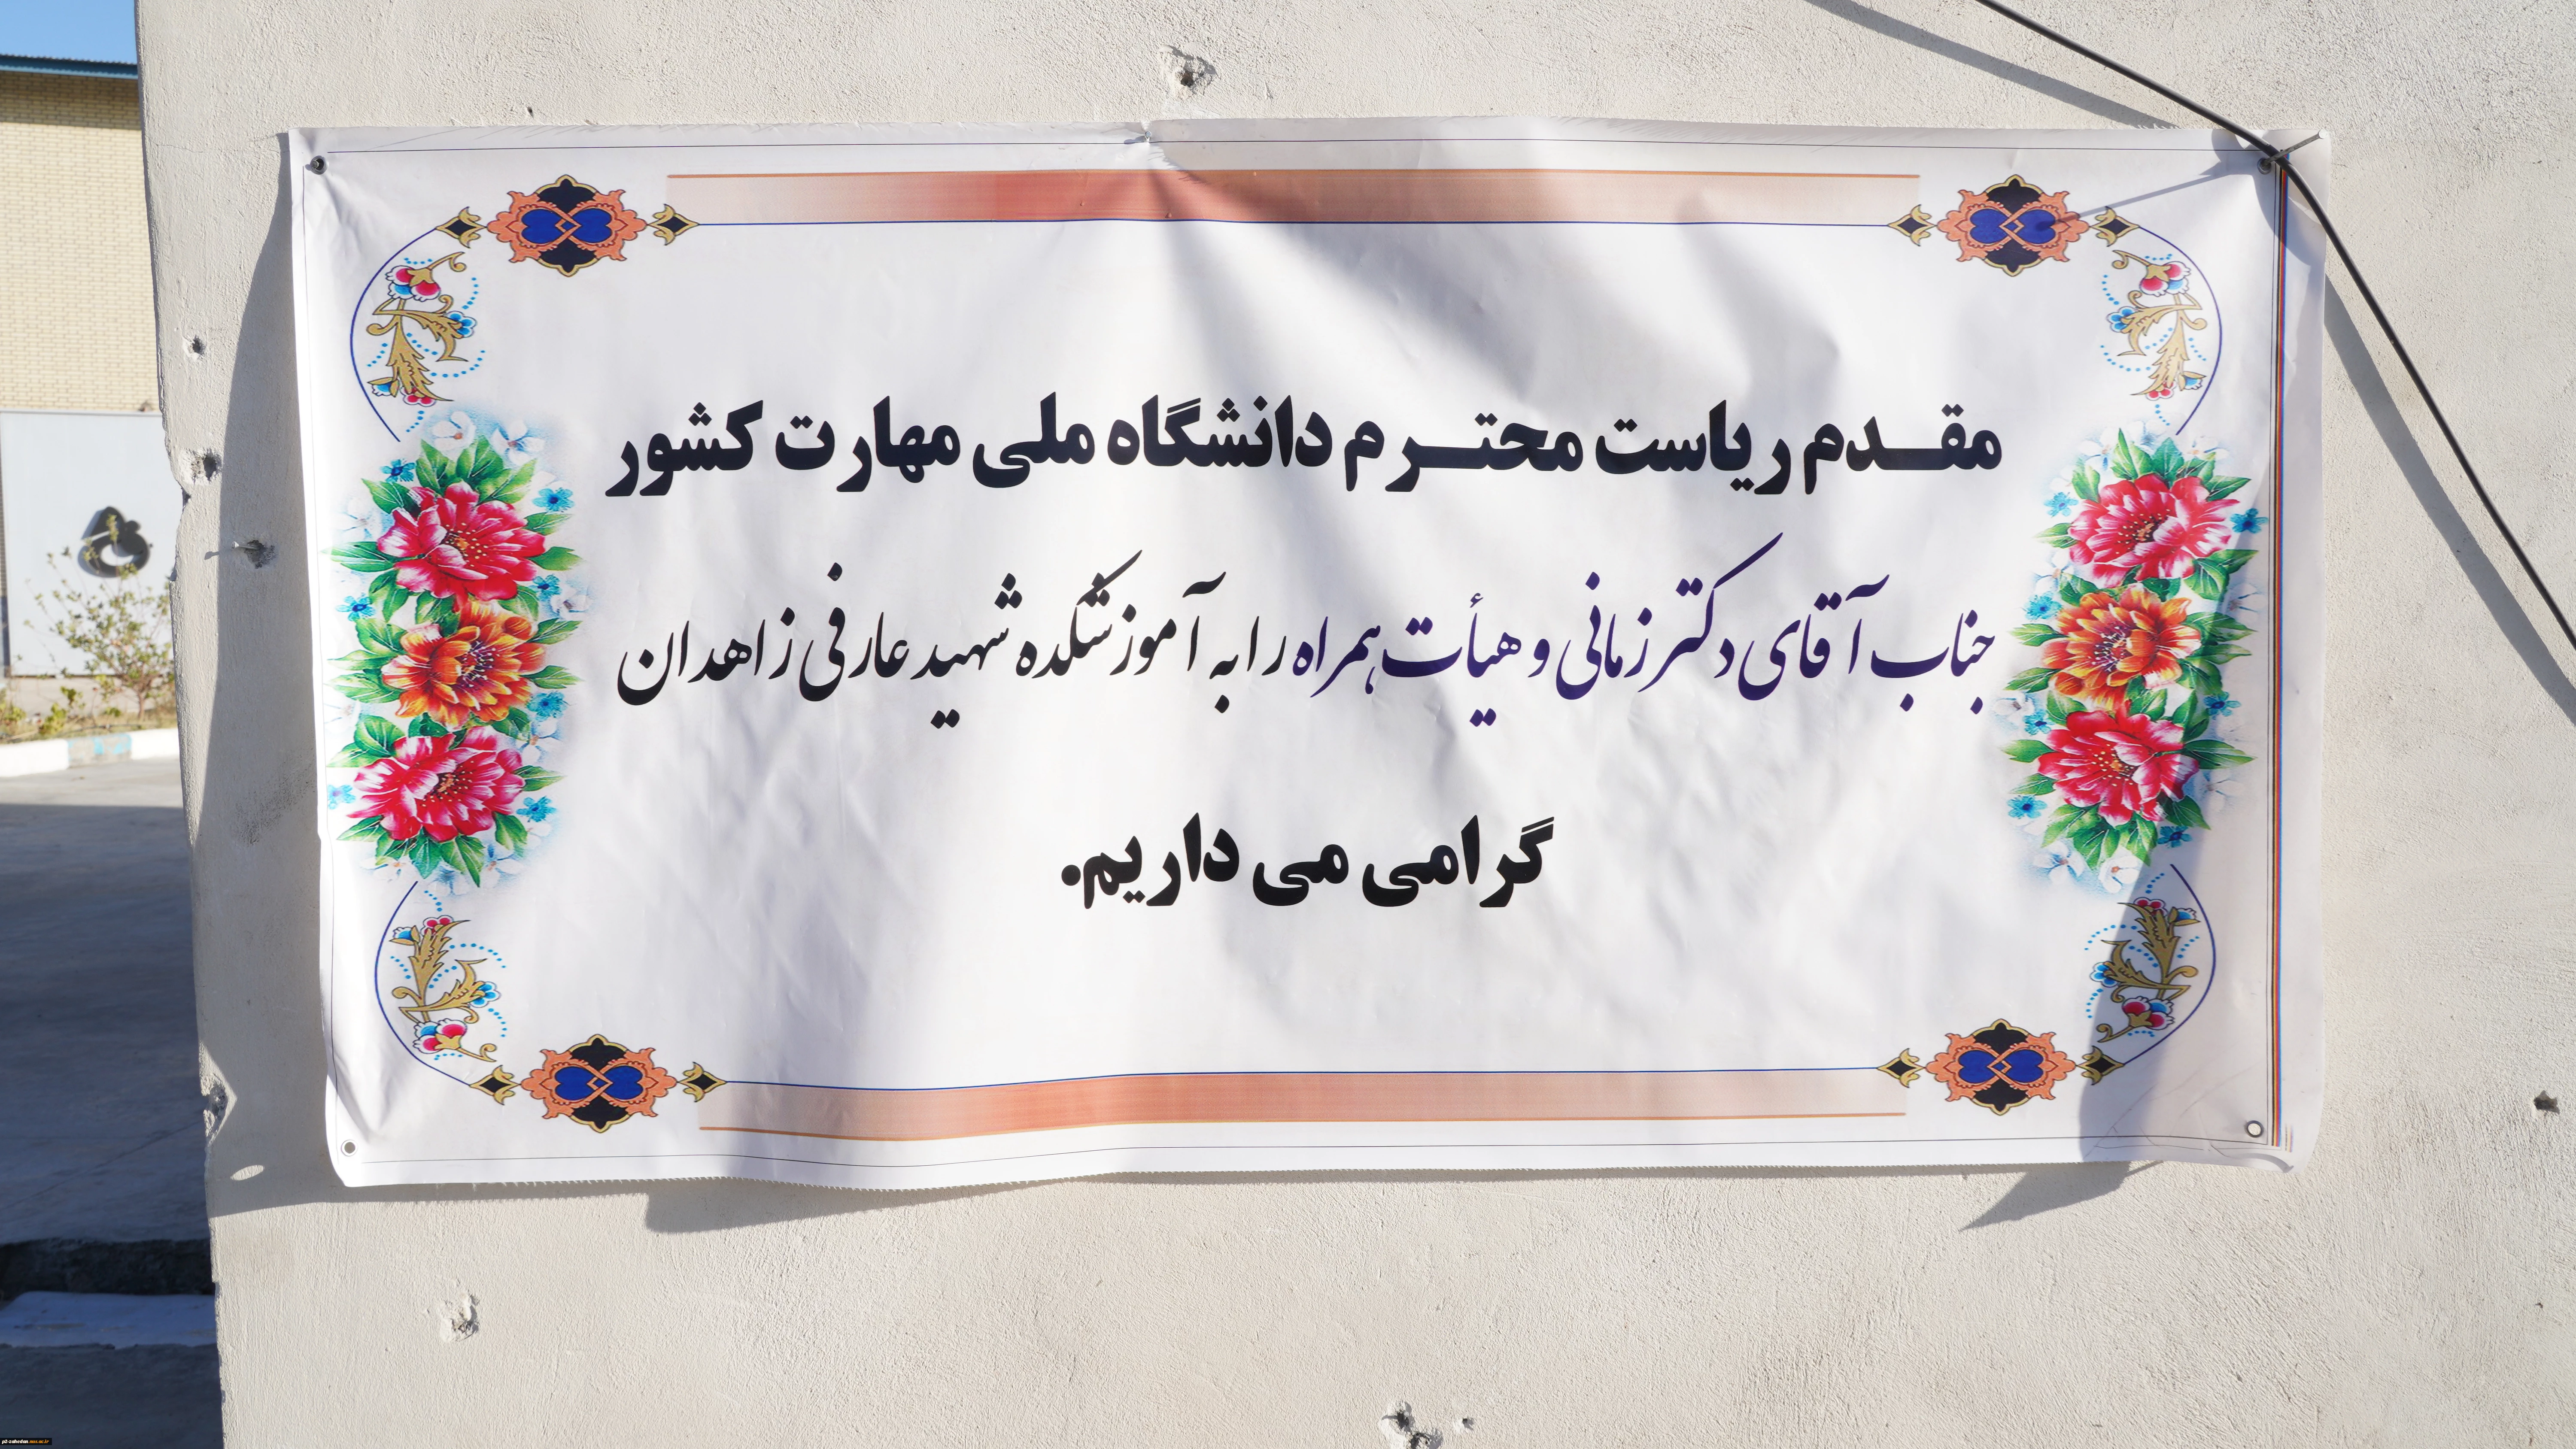 مقدم ریاست محترم دانشگاه ملی مهارت کشور
جناب آقای دکتر زمانی و هیأت همراه را به آموزشکده شهید عارفی زاهدان
گرامی می داریم.